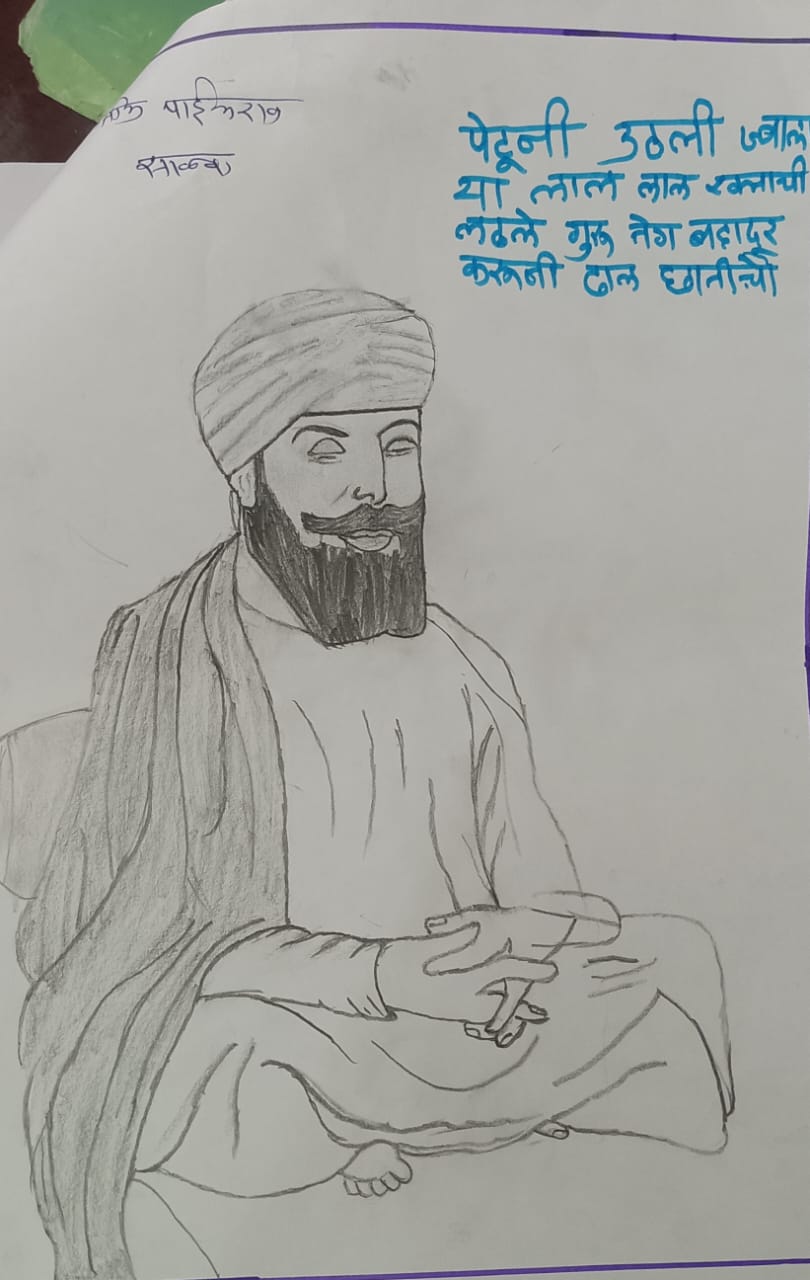 पेटूनी उठली ज्वाला
या लाल लाल रक्ताची
लढले गुरू तेग बहादूर
करूनी ढाल छातीची